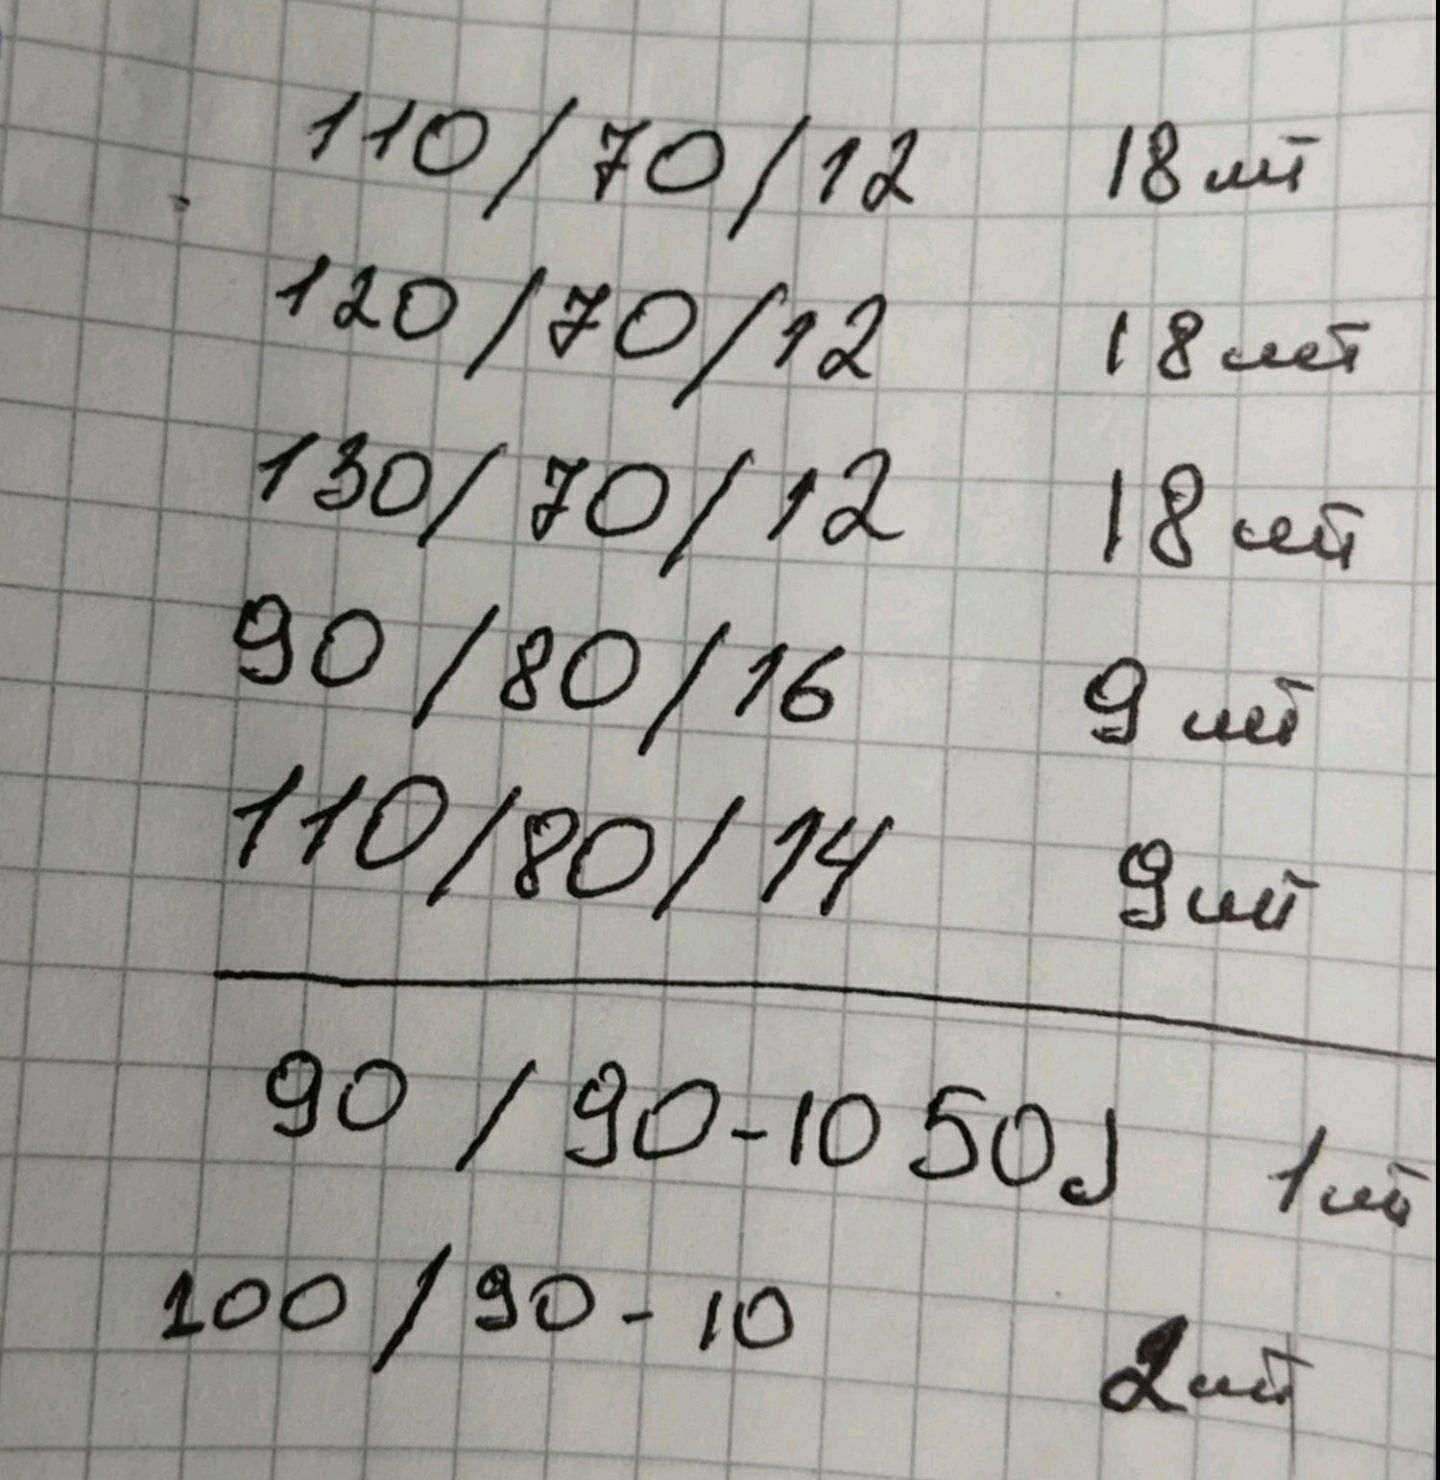 110/70/12 18шт
120/70/12 18шт
130/70/12 18шт
90/80/16 9шт
110/80/14 9шт
90/90-10 50J 1шт
100/90-10 2шт